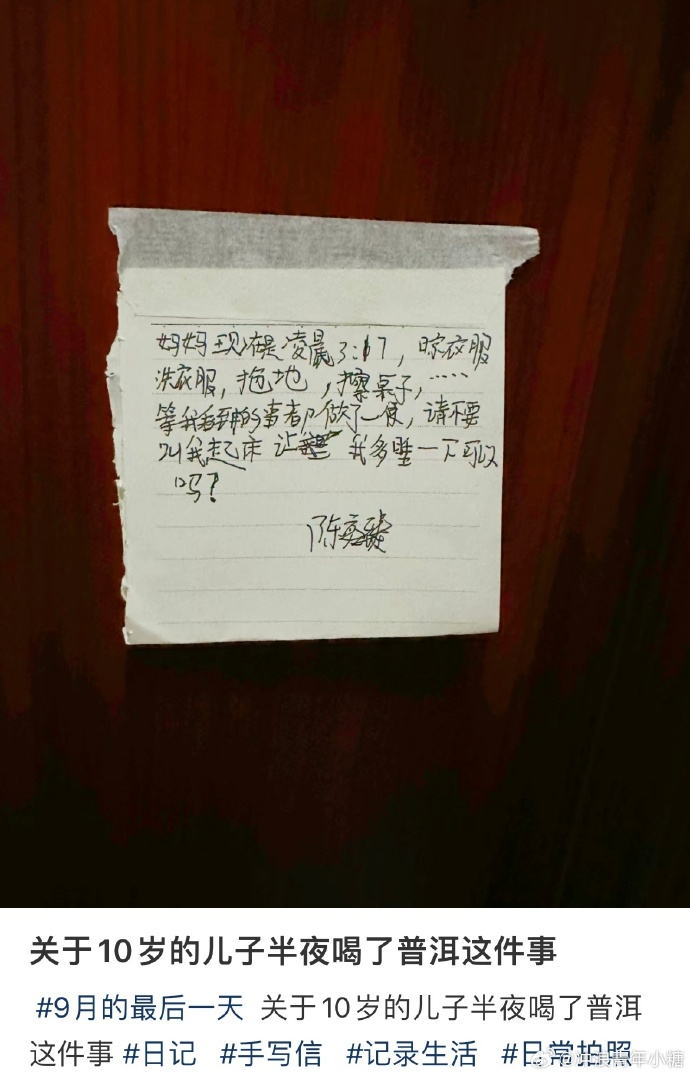 妈妈现在是凌晨3:17，晾衣服
洗衣服，拖地，擦桌子，……
等我看到的事都做了一遍，请不要
叫我起床 让 我多睡一下可以
吗？
陈奕
关于10岁的儿子半夜喝了普洱这件事
#9月的最后一天 关于10岁的儿子半夜喝了普洱
这件事 #日记 #手写信 #记录生活 #日常拍照
@冲浪青年小糖